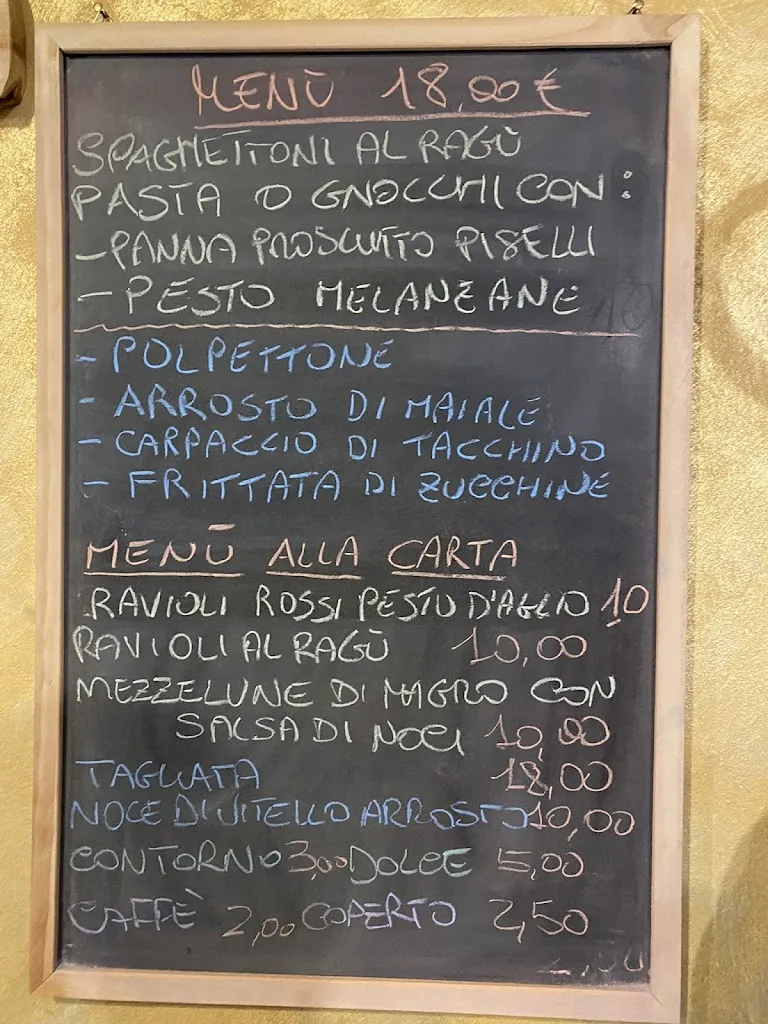 MENÙ 18,00 €
SPAGHETTONI AL RAGÙ
PASTA O GNOCCHI CON :
- PANNA PROSCIUTTO PISELLI
- PESTO MELANZANE
- POLPETTONE
- ARROSTO DI MAIALE
- CARPACCIO DI TACCHINO
- FRITTATA DI ZUCCHINE
MENÙ ALLA CARTA
RAVIOLI ROSSI PESTO D'AGLIO 10
RAVIOLI AL RAGÙ 10,00
MEZZELUNE DI MAGRO CON
SALSA DI NOCI 10,00
TAGLIATA 18,00
NOCE DI VITELLO ARROSTO 10,00
CONTORNO 3,00 DOLCE 5,00
CAFFÈ 2,00 COPERTO 2,50